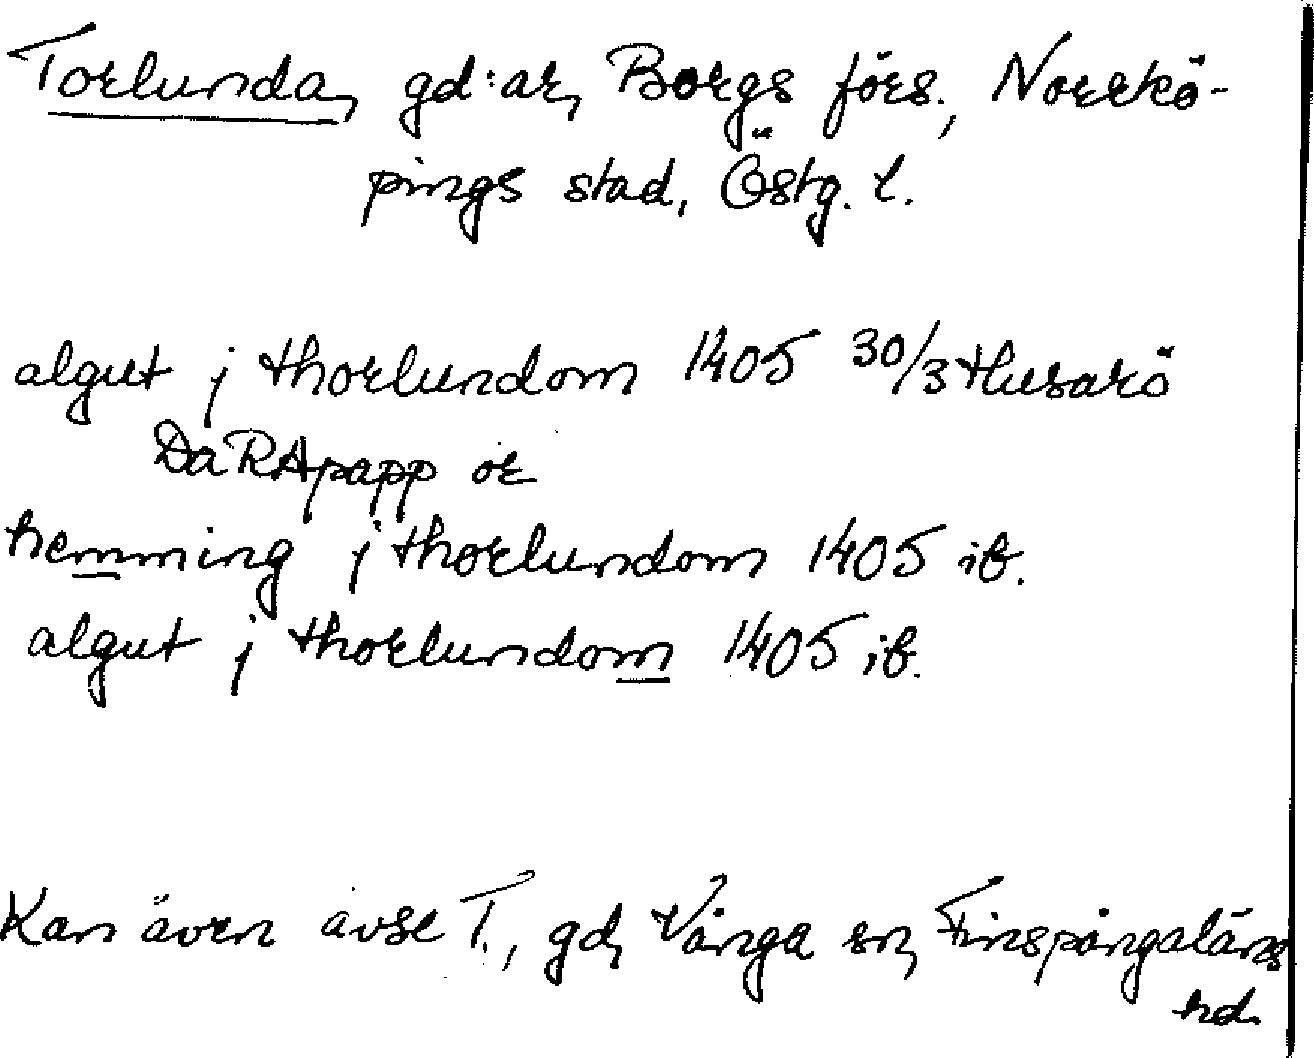 Torlunda, gd:ar, Borgs förs., Norrkö-
pings stad, Östg. l.
algut j thorlundom 1405 30/3 Husarö
Da RApapp or
hemming j thorlundom 1405 ib.
algut j thorlundom 1405 ib.
Kan även avse T., gd, Vånga sn, Finspångaläns
hd.